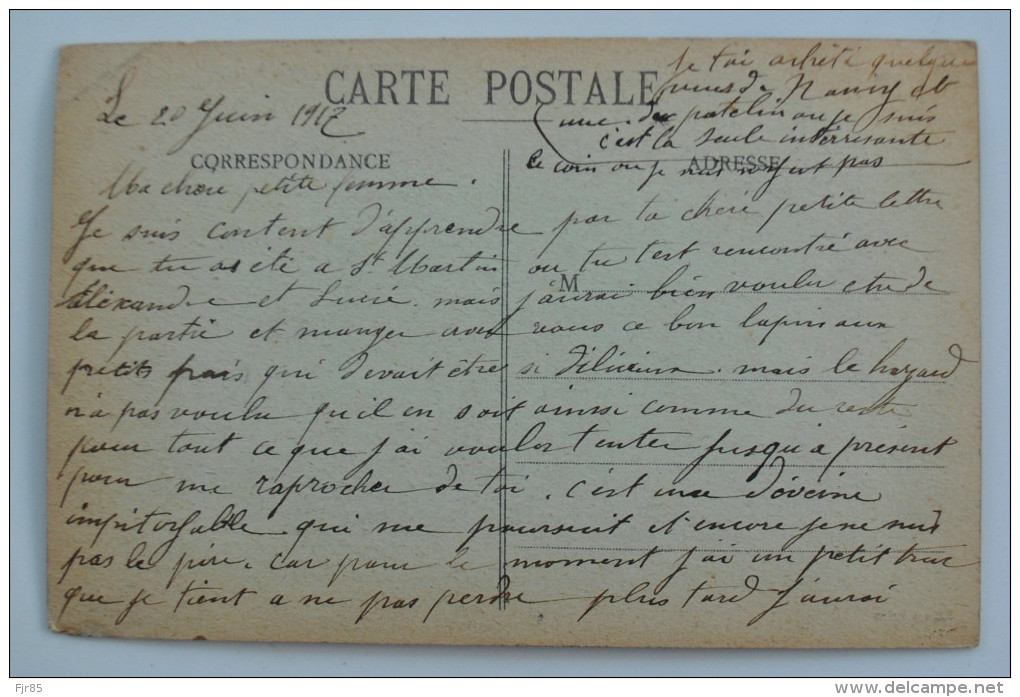 je tai acheté quelque
vues de Nancy et
CARTE POSTALE
une du patelin ou je suis
Le 20 Juin 1917
c'est la seule interresante
CORRESPONDANCE
ADRESSE
le coin ou je suis pas
Ma chère petite femme.
Je suis content d'apprendre par ta chère petite lettre
que tu as été a St Martin ou tu t'est rencontré avec
M
alexandre et Lucie. mais j'aurai bien voulu etre de
la partie et manger avec vous ce bon lapin aux
petits pois qui devait être si délicieux. mais le hazard
n'a pas voulu qu'il en soit ainsi comme du reste
pour tout ce que j'ai voulu tenter jusqu'a présent
pour me raprocher de toi. c'est une déveine
qui me poursuit et encore je ne suis
pas le pire. car pour le moment j'ai un petit truc
que je tient a ne pas perdre plus tard j'aurai
Fjr85
www.delcampe.net